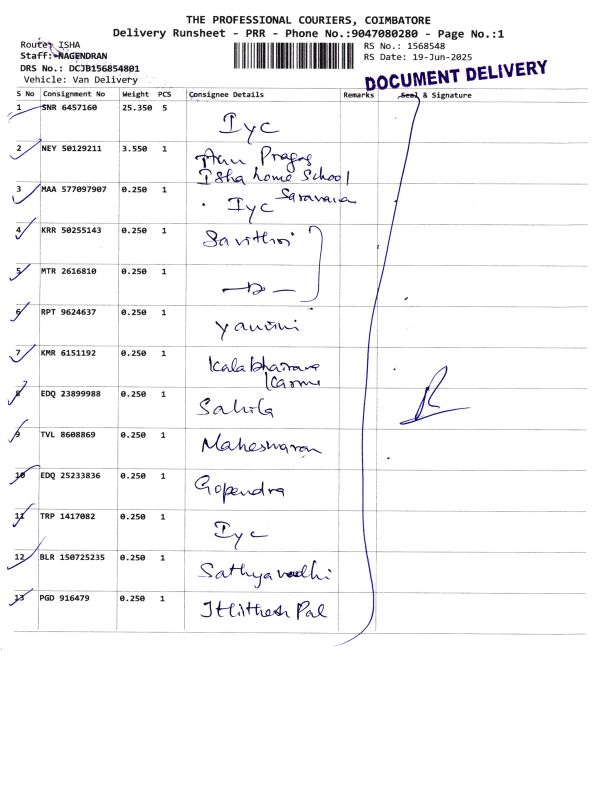 THE PROFESSIONAL COURIERS, COIMBATORE
Delivery Runsheet - PRR - Phone No.:9047080280 - Page No.:1
Route: ISHA
RS No.: 1568548
Staff: NAGENDRAN
RS Date: 19-Jun-2025
DRS No.: DCJB156854801
Vehicle: Van Delivery
DOCUMENT DELIVERY
S No Consignment No Weight PCS Consignee Details Remarks Seal & Signature
1 SNR 6457160 25.350 5
Iyc
2 NEY 50129211 3.550 1
Isha home School
3 MAA 577097907 0.250 1 Iyc
4 KRR 50255143 0.250 1 Savithri
5 MTR 2616810 0.250 1
—Do—
6 RPT 9624637 0.250 1
Yamini
7 KMR 6151192 0.250 1
Kalabhairava
Karma
8 EDQ 23899988 0.250 1
Sahila
9 TVL 8608869 0.250 1
Maheswaran
10 EDQ 25233836 0.250 1
Gopendra
11 TRP 1417082 0.250 1
Iyc
12 BLR 150725235 0.250 1
13 PGD 916479 0.250 1
Pal